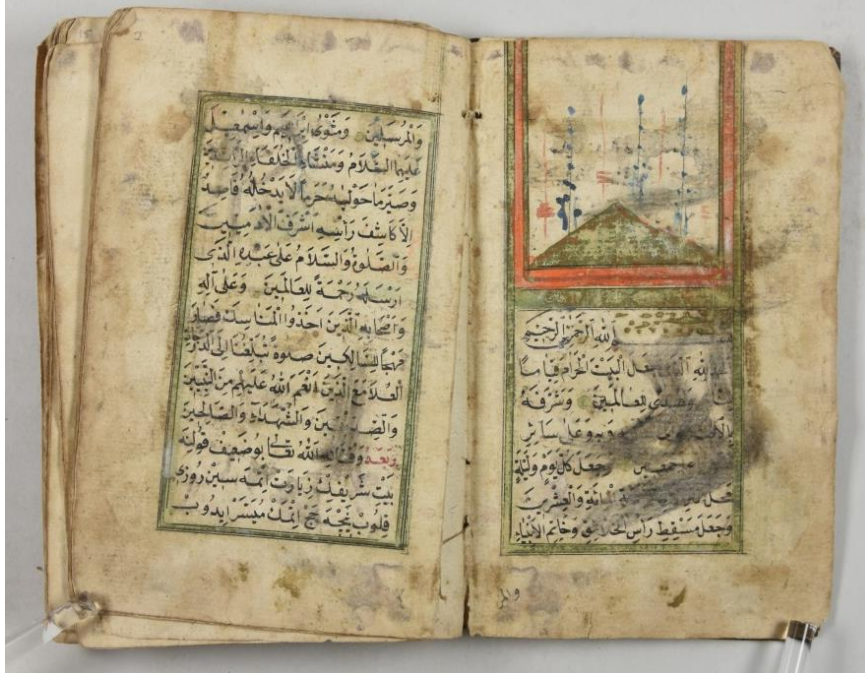 الله الرحمن الرحيم
الحمد لله الذي جعل البيت الحرام قياما
وهدى للعالمين وشرفه
وعلى سائر
وجعل كل يوم وليلة
المائة والعشرين
وجعل مسقط رأس وخاتم الأنبياء
والمر
والمرسلين ومثوى ابراهيم واسمعيل
عليهما السلام ومنشاء الخلفاء الراشدين
وصير ما حوليه حرما لا يدخله قاصد
الا كاشف رأسه اشرف الادميين
والصلوة والسلام على عبده الذى
ارسله رحمة للعالمين وعلى آله
واصحابه الذين اخذوا المناسك فصار
منهجا للسالكين صلوة تبلغنا الى الدرجات
العلا مع الذين انعم الله عليهم من النبيين
والصديقين والشهداء والصالحين
وبعد الله تعالى بو ضعيف قولنه
بيت شريفك زيارت اتمه سين روزى
قلوب نجه حج اتمك ميسر ايدوب